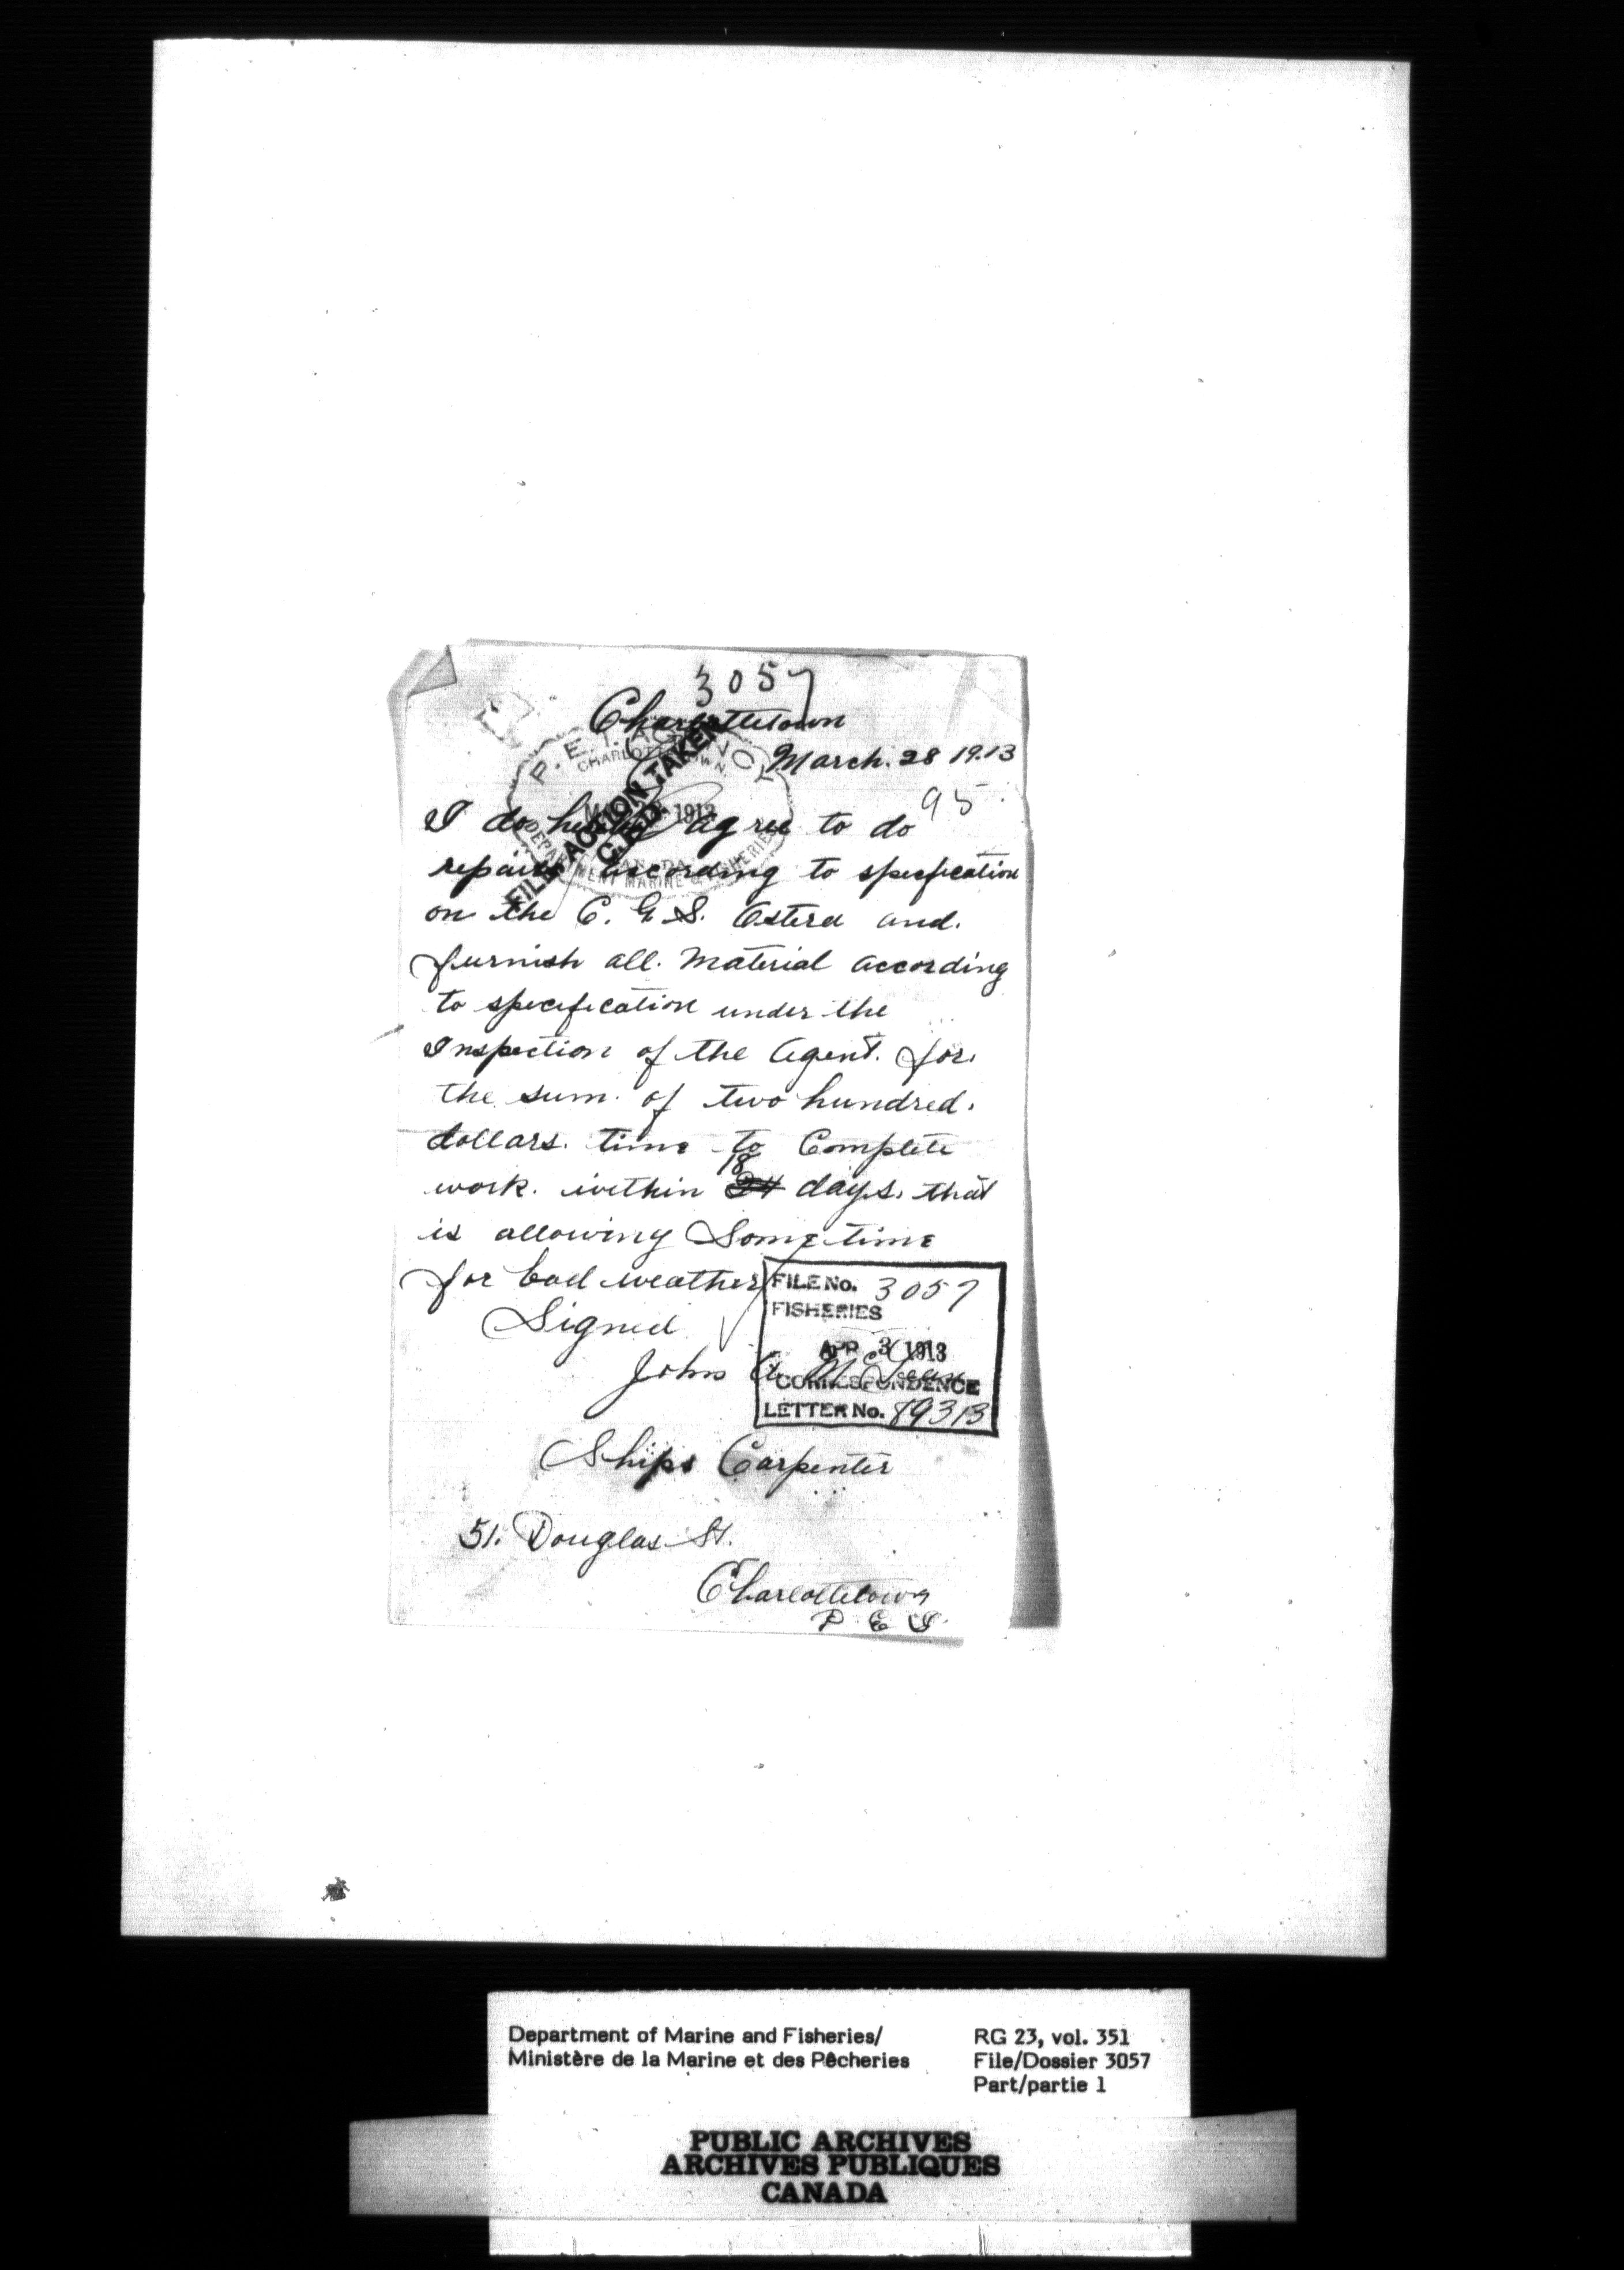 3057
Charlottetown
March. 28 1913
95
P. E. I. AGENCY
CHARLOTTETOWN.
1913
CANADA
DEPARTMENT MARINE & FISHERIES
FILE ACTION TAKEN
I do hereby agree to do
repairs according to specfication
on the C. G. S. Ostera and.
furnish all. Material according
to specification under the
Inspection of the Agent. for.
the sum. of two hundred.
dollars. time to Complete
work. within 18 24 days. that
is allowing Some time
for bad weather
Signed
John A McLean
Ships Carpenter
51. Douglas St.
Charlottetown
P E I
FILE No. 3057
FISHERIES
APR 3 1913
CORRESPONDENCE
LETTER No. 89313
Department of Marine and Fisheries/
Ministère de la Marine et des Pêcheries
RG 23, vol. 351
File/Dossier 3057
Part/partie 1
PUBLIC ARCHIVES
ARCHIVES PUBLIQUES
CANADA